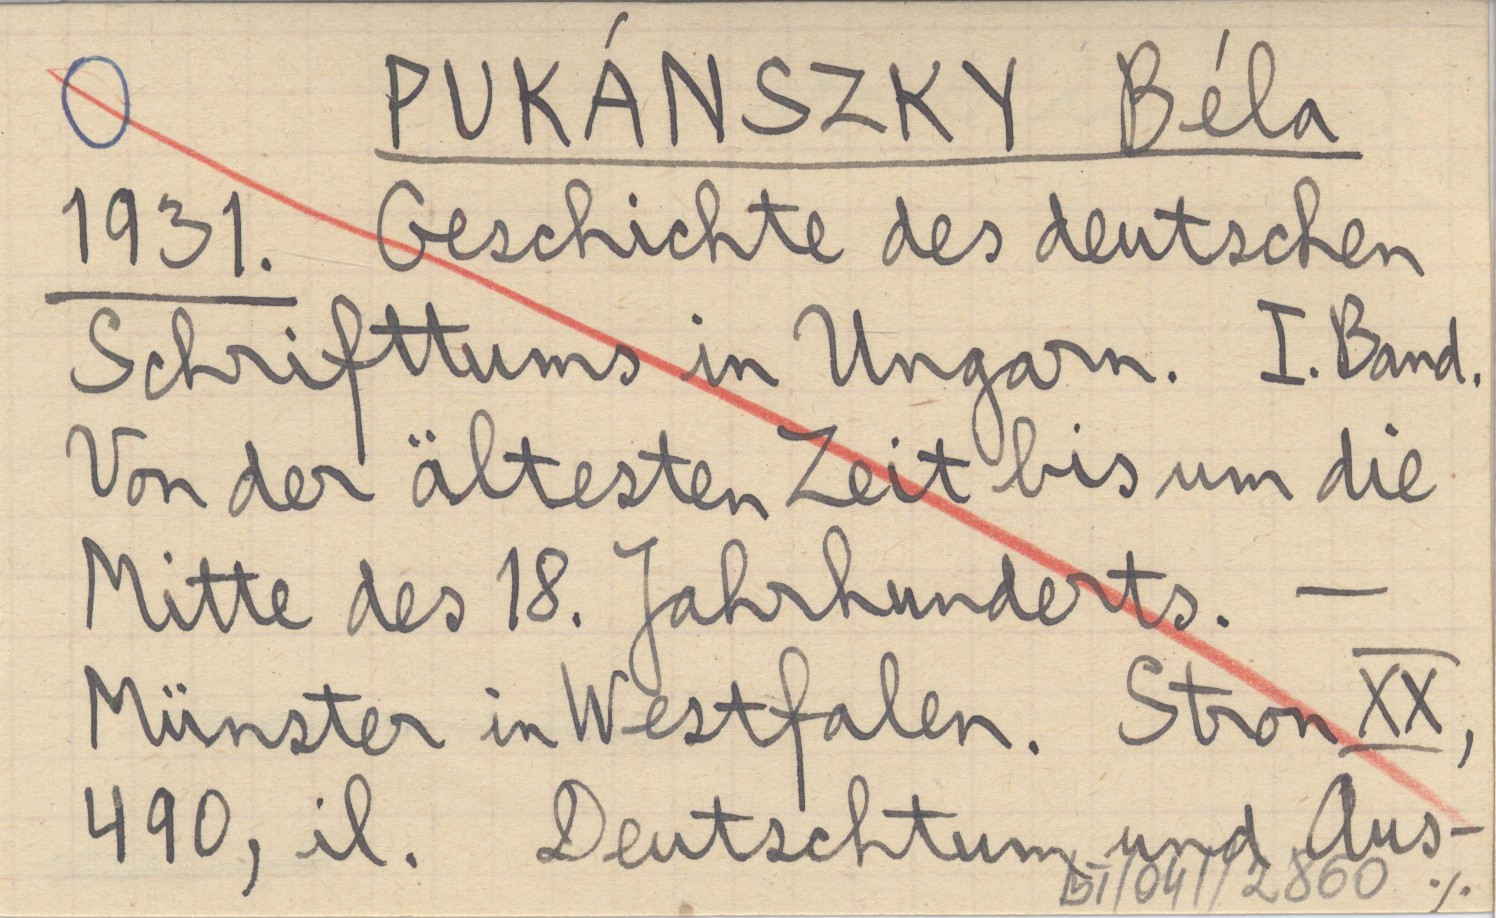 PUKÁNSZKY Béla
1931. Geschichte des deutschen
Schrifttums in Ungarn. I. Band.
Von der ältesten Zeit bis um die
Mitte des 18. Jahrhunderts. —
Münster in Westfalen. Stron XX,
490, il. Deutschtum und Aus-
BI/041/2860 ./.